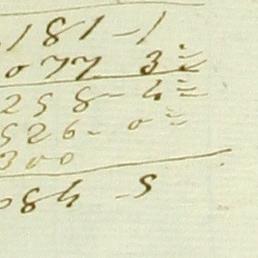 181-1
077 3=
258-4=
526-0=
300
084-5